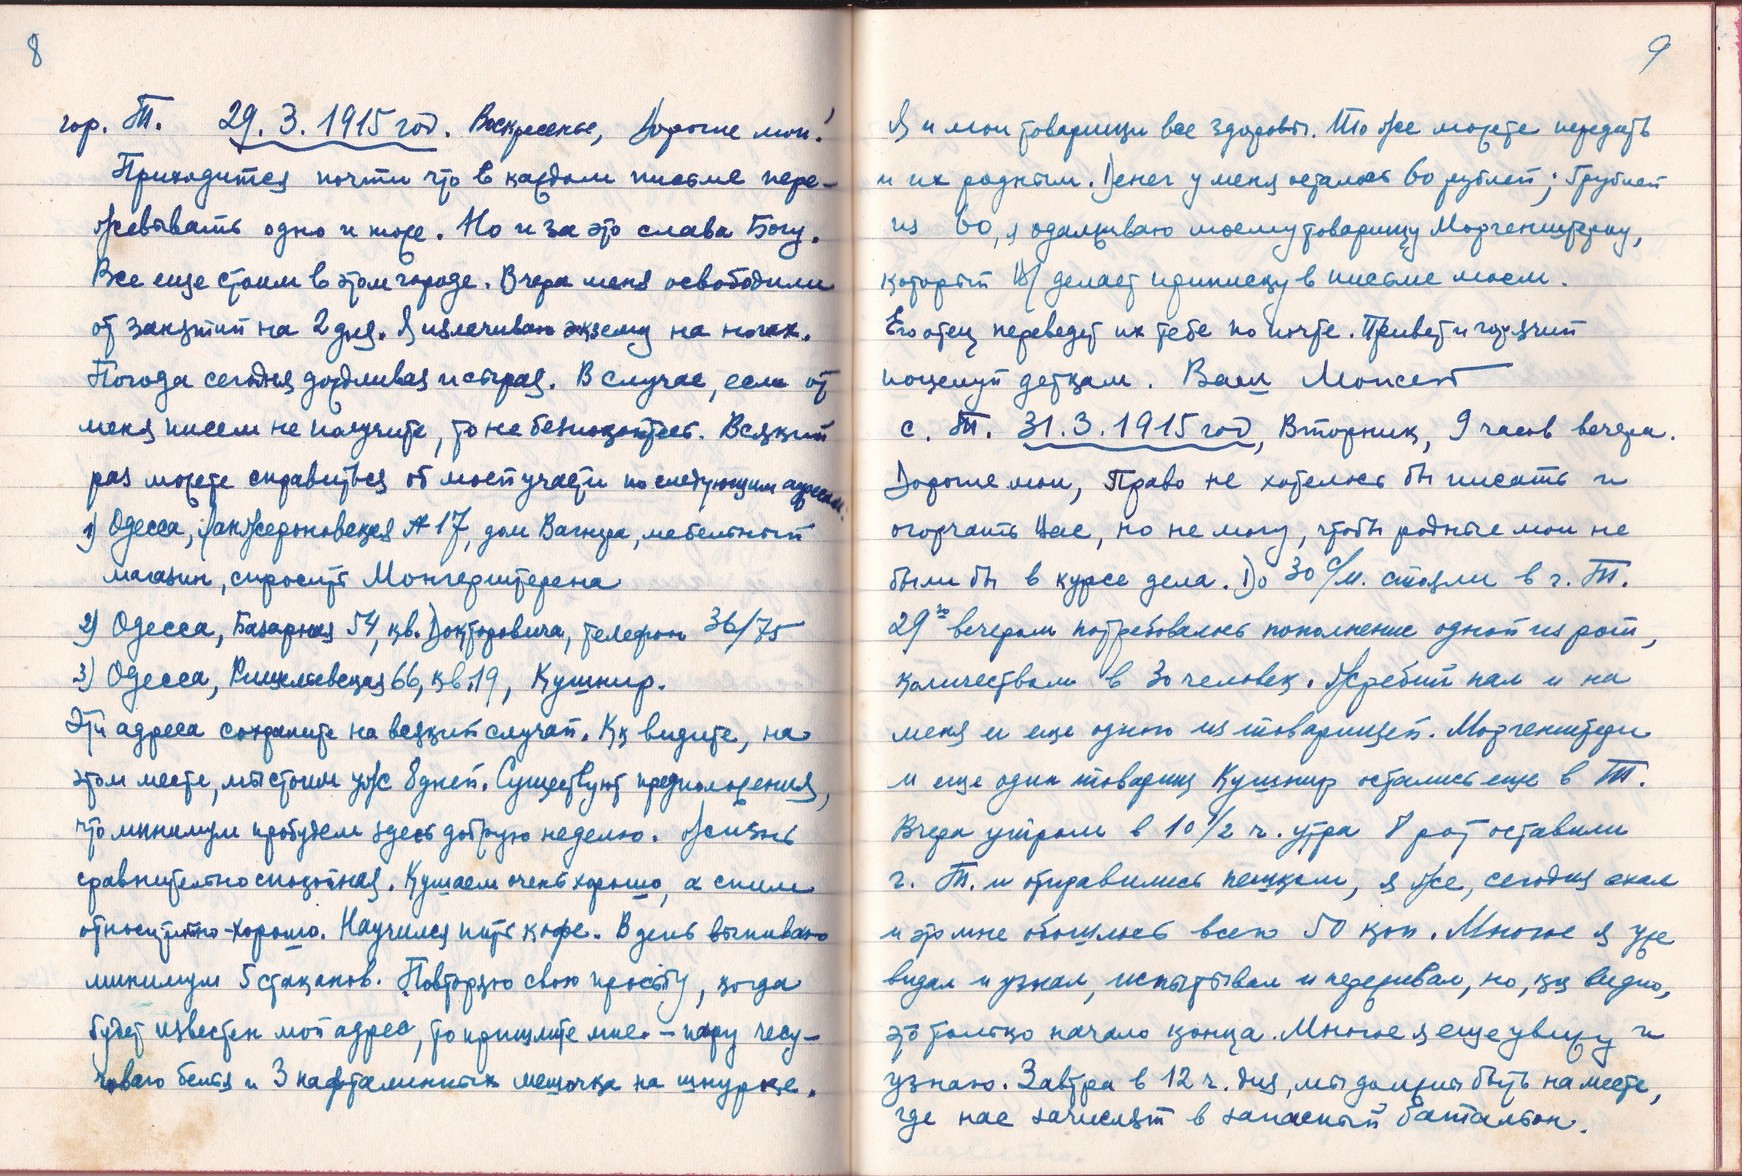 8
гор. Т. 29.3.1915 год. Воскресенье, Дорогие мои!
Приходится почти что в каждом письме пере-
жевывать одно и тоже. Но и за это слава Богу.
Все еще стоим в этом городе. Вчера меня освободили
от занятий на 2 дня. Я излечиваю экзему на ногах.
Погода сегодня дождливая и сырая. В случае, если от
меня писем не получите, то не безпокойтесь. Всякий
раз можете справиться об моей участи по следующим адресам:
1) Одесса, Ланжероновская № 17, дом Вагнера, мебельный
магазин, спросить Монгерштерена
2) Одесса, Базарная 54, кв. Докторовича, телефон 36/75
3) Одесса, Ришельевская 66, кв. 19, Кушнир.
Эти адреса сохраните на всякий случай. Как видите, на
этом месте, мы стоим уж 8 дней. Существуют предположения,
что минимум пробудем здесь добрую неделю. Жизнь
сравнительно спокойная. Кушаем очень хорошо, а спим
относительно-хорошо. Научился пить кофе. В день выпиваю
минимум 5 стаканов. Повторяю свою просьбу, когда
будет известен мой адрес, то пришлите мне - пару чесу-
човаго белья и 3 нафталинных мешочка на шнурке.
9
Я и мои товарищи все здоровы. То же можете передать
и их родным. Денег у меня осталось 60 рублей; рублей
из 60, я одалживаю моему товарищу Моргенштерну,
который делает приписку в письме моем.
Его отец переведет их тебе по почте. Привет и горячий
поцелуй деткам. Ваш Моисей
с. Т. 31.3.1915 год, Вторник, 9 часов вечера.
Дорогие мои, Право не хотелось бы писать и
огорчать Вас, но не могу, чтобы родные мои не
были бы в курсе дела. До 30 с/м. стояли в г. Т.
29го вечером потребовалось пополнение одной из рот,
количеством в 30 человек. Жребий пал и на
меня и еще одного из товарищей. Моргенштерн
и еще один товарищ Кушнир остались еще в Т.
Вчера утром в 10 1/2 ч. утра 8 рот оставили
г. Т. и отправились пешком, я же, сегодня ехал
и это мне обошлось всего 50 коп. Многое я уже
видал и узнал, испытывал и переживал, но, как видно,
это только начало конца. Многое я еще увижу и
узнаю. Завтра в 12 ч. дня, мы должны быть на месте,
где нас зачислят в запасный батальон.